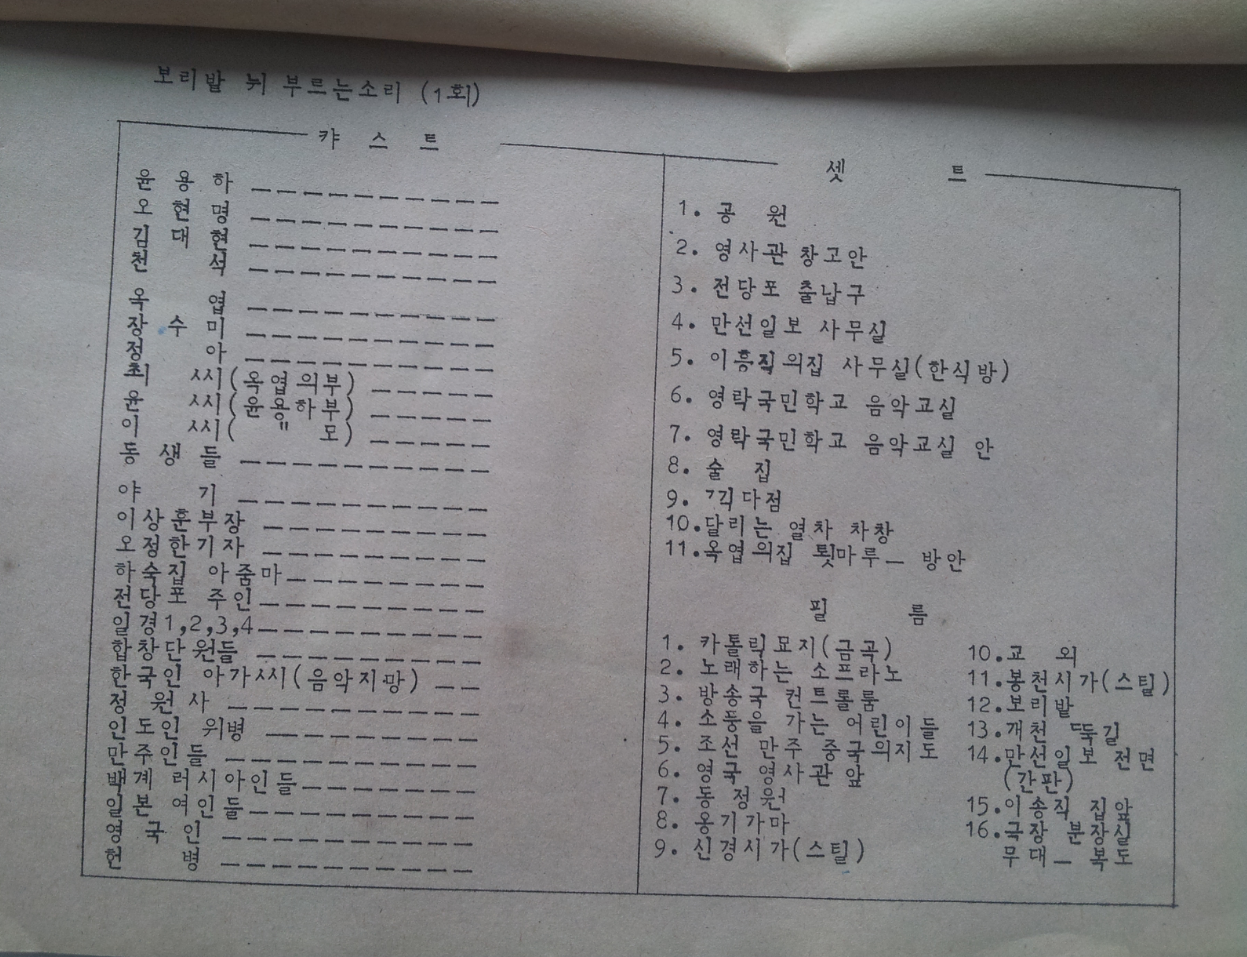 보리밭 뉘 부르는소리 (1회)
캬 스 트
윤 용 하
오 현 명
김 대 현
천 석
옥 엽
장 수 미
정 아
최 씨(옥엽의부)
윤 씨(윤용하부)
이 씨( " 모)
동 생 들
야 기
이상훈부장
오정한기자
하숙집 아줌마
전당포 주인
일경1,2,3,4
합창단원들
한국인 아가씨(음악지망)
정 원 사
인도인 위병
만주인들
백계 러시아인들
일본 여인들
영 국 인
헌 병
셋 트
1. 공 원
2. 영사관 창고안
3. 전당포 출납구
4. 만선일보 사무실
5. 이흥직의집 사무실(한식방)
6. 영락국민학교 음악교실
7. 영락국민학교 음악교실 안
8. 술 집
9. 끽다점
10.달리는 열차 차창
11.옥엽의집 툇마루_ 방안
필 름
1. 카톨릭묘지(금곡)
2. 노래하는 소프라노
3. 방송국 컨트롤룸
4. 소풍을 가는 어린이들
5. 조선 만주 중국의지도
6. 영국 영사관 앞
7. 동 정원
8. 옹기가마
9. 신경시가(스틸)
10.교 외
11.봉천시가(스틸)
12.보리밭
13.개천 뚝길
14.만선일보 전면
(간판)
15.이송직 집앞
16.극장 분장실
무대_ 복도